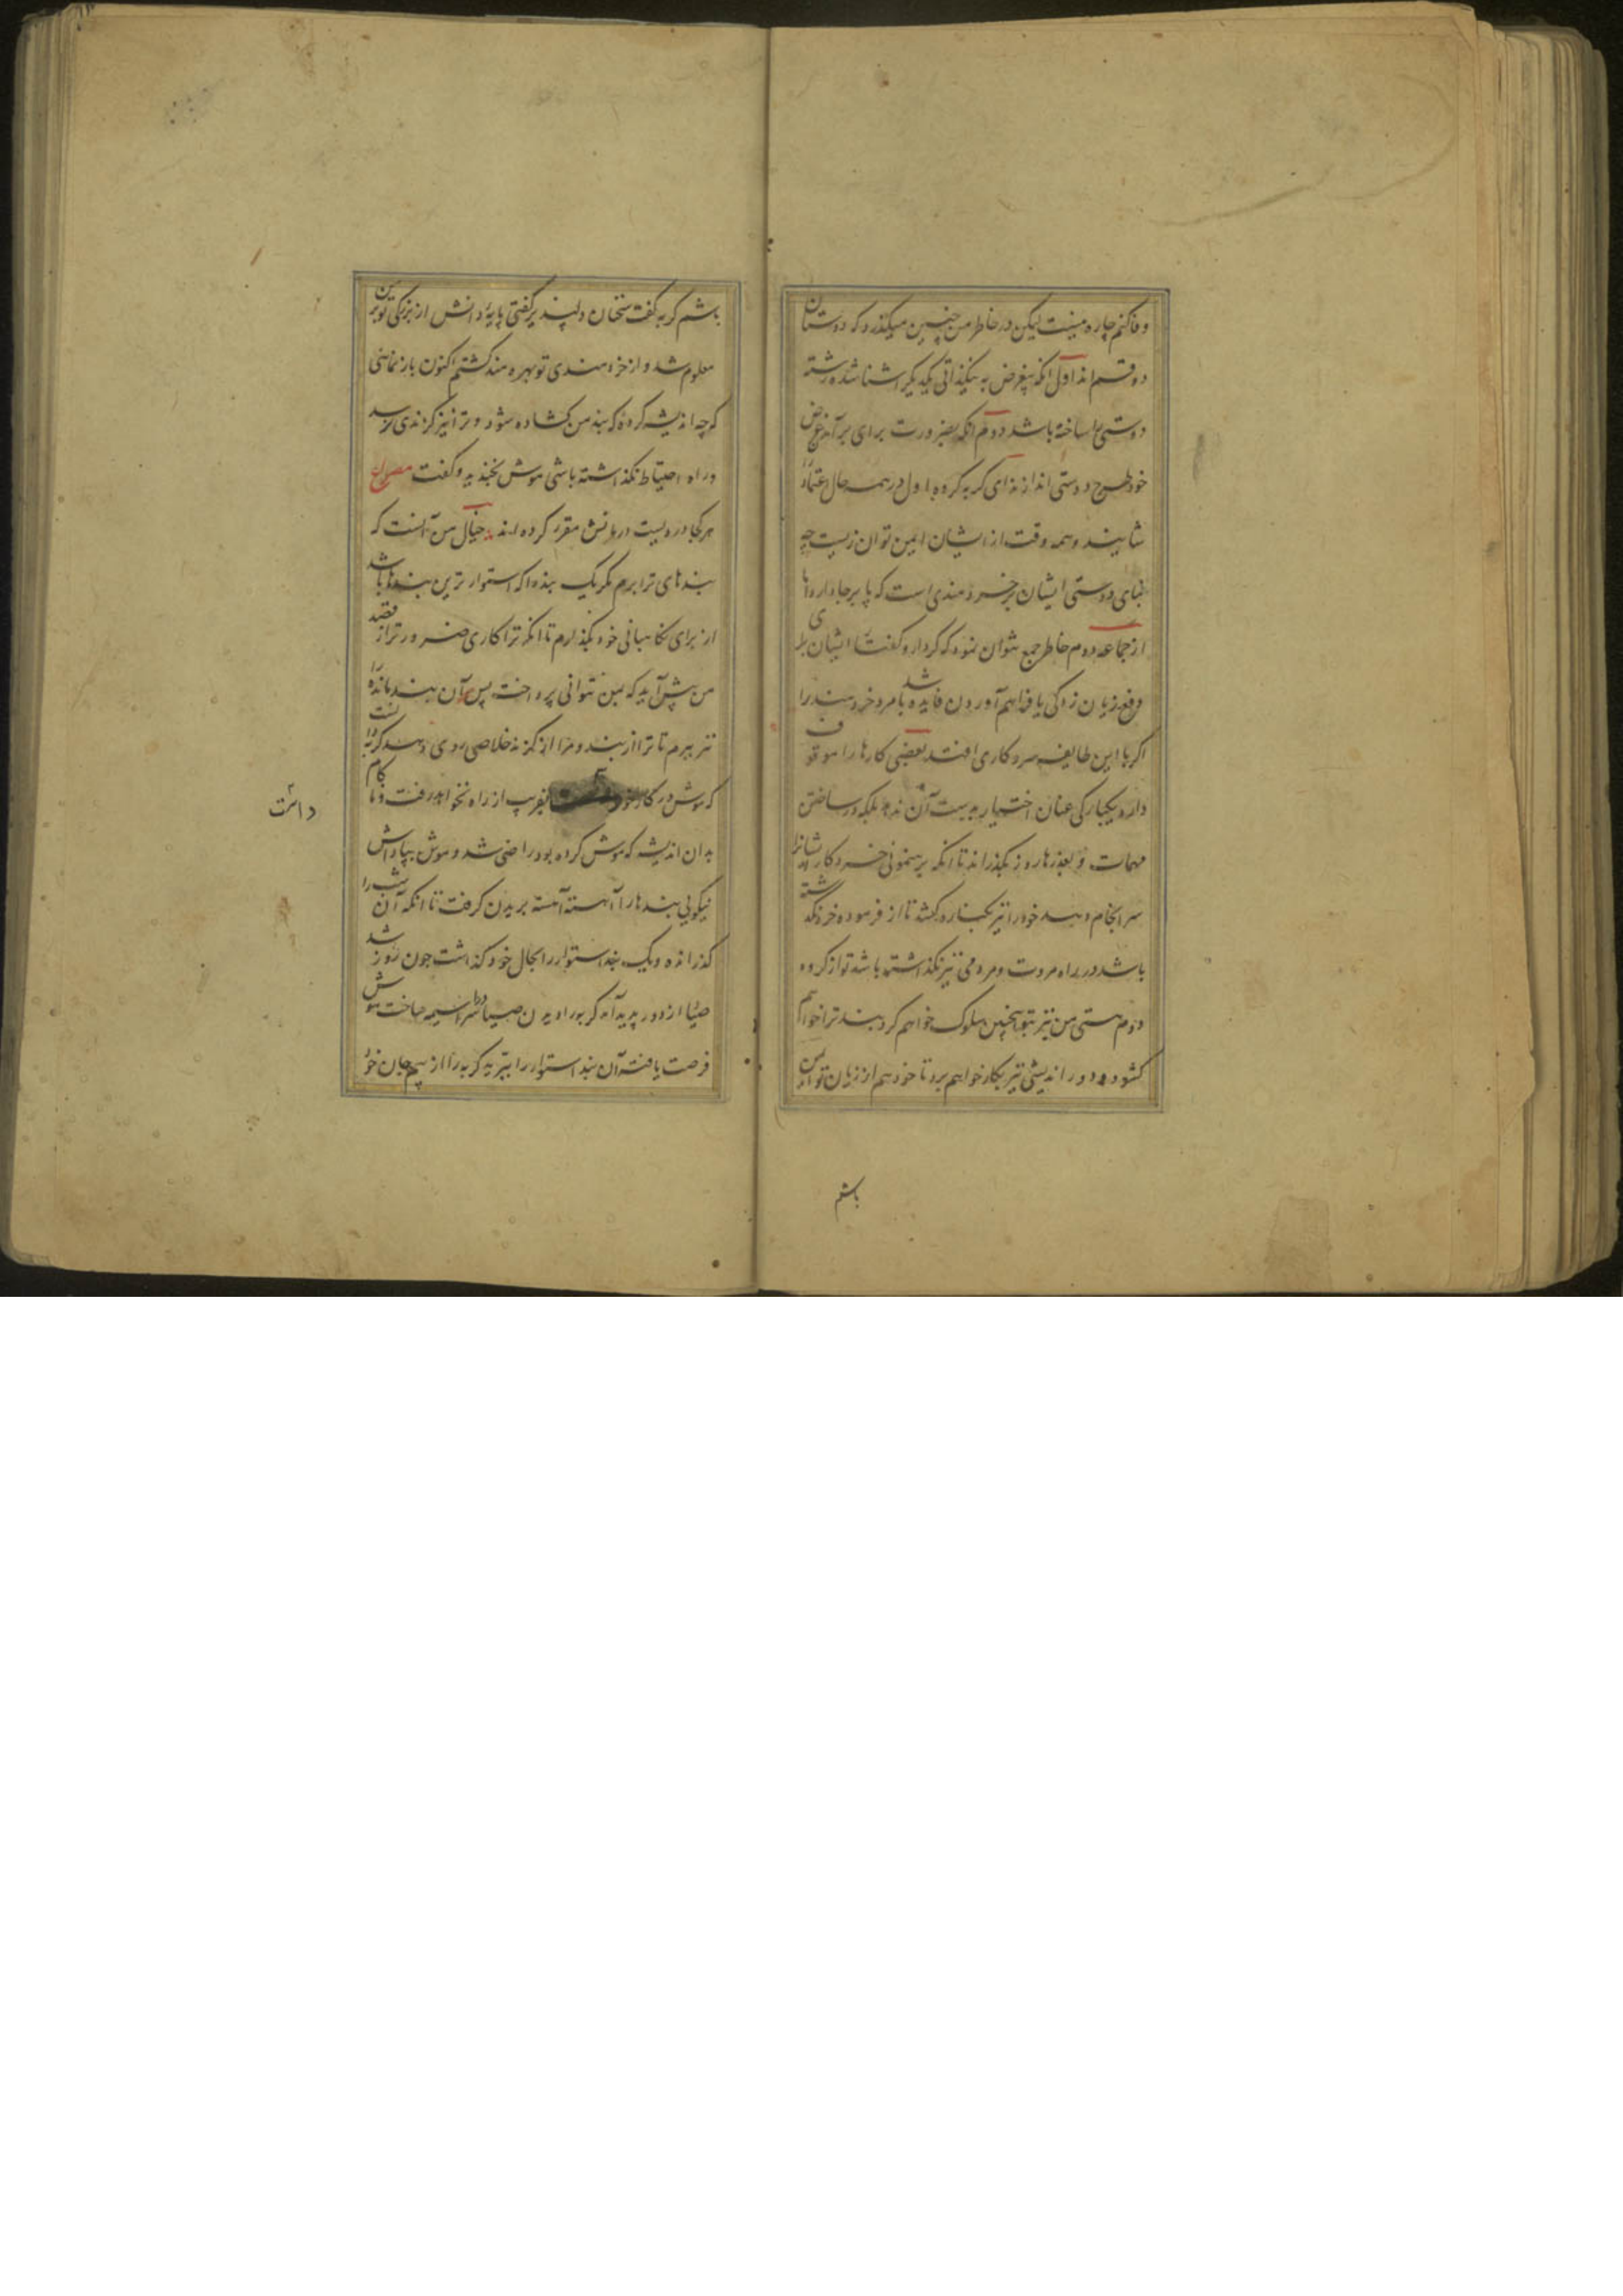 وفا کنم چاره نیست لیکن در خاطر من چنین میگذرد که دوستان
دو قسم اند اول آنکه بیغرض به نیکذاتی یکدیگر آشنا شده رشته
دوستی را ساخته باشد دوم آنکه بضرورت برای برآمد غرض
خود طرح دوستی اندازند ای گربه گروه اول در همه حال اعتماد را
شایند و همه وقت از ایشان ایمن توان زیست چه
بنای دوستی ایشان بر خردمندی است که پا برجا دارد اما
از جماعه دوم خاطر جمع نتوان نمود که کردار و گفتار ایشان برای
دفع زیان زدگی یا فراهم آوردن فایده باشد مرد خردمند را
اگر با این طایفه سر و کاری افتد بعضی کارها را موقوف
دارد یکبارگی عنان اختیار بدست آن ندهد بلکه در ساختن
مهمات بعذرها روز بگذراند تا آنکه برهنمونی خرد کار ایشانرا
سرانجام دهد خود را نیز بکناره کشد تا از فرموده خرد نگذشته
باشد و راه مروت و مردمی نیز نگذاشته باشد تو از گروه
دوم هستی من نیز بتو همچنین سلوک خواهم کرد بند ترا خواهم
کشود و دور اندیشی نیز بکار خواهم برد تا خود هم از زیان تو ایمن
باشم
باشم گربه گفت سخنان دلپذیر گفتی پایه دانش از بزرگی تو برین
معلوم شد و از خردمندی تو بهره مند گشتم اکنون باز نمای
که چه اندیشه کرده که بند من کشاده شود و ترا نیز گزندی نرسد
و راه احتیاط نگذاشته باشی موش بخندید و گفت مصراع
هر کجا دردیست درمانش مقرر کرده اند خیال من آنست که
بندهای ترا ببرم مگر یک بند را که استوار ترین بندها باشد
از برای نگاهبانی خود بگذارم تا آنکه ترا کاری ضرورتر از قصد
من پیش آید که بمن نتوانی پرداخت پس آن بند مانده را
نیز ببرم تا ترا از بند و مرا از گزند خلاصی روی دهد گربه دانست
که موش در کار خود بفریب از راه نخواهد رفت و ناکام
داشت
بدان اندیشه که موش کرده بود راضی شد و موش بپاداش
نیکویی بندها را آهسته آهسته بریدن گرفت تا آنکه آن شب را
گذرانده و یک بند استوار را بحال خود گذاشت چون روز شد
صیاد از دور پدید آمد گربه را دیدن صیاد سراسیمه ساخت موش
فرصت یافته آن بند استوار را ببرید گربه را از بیم جان خود